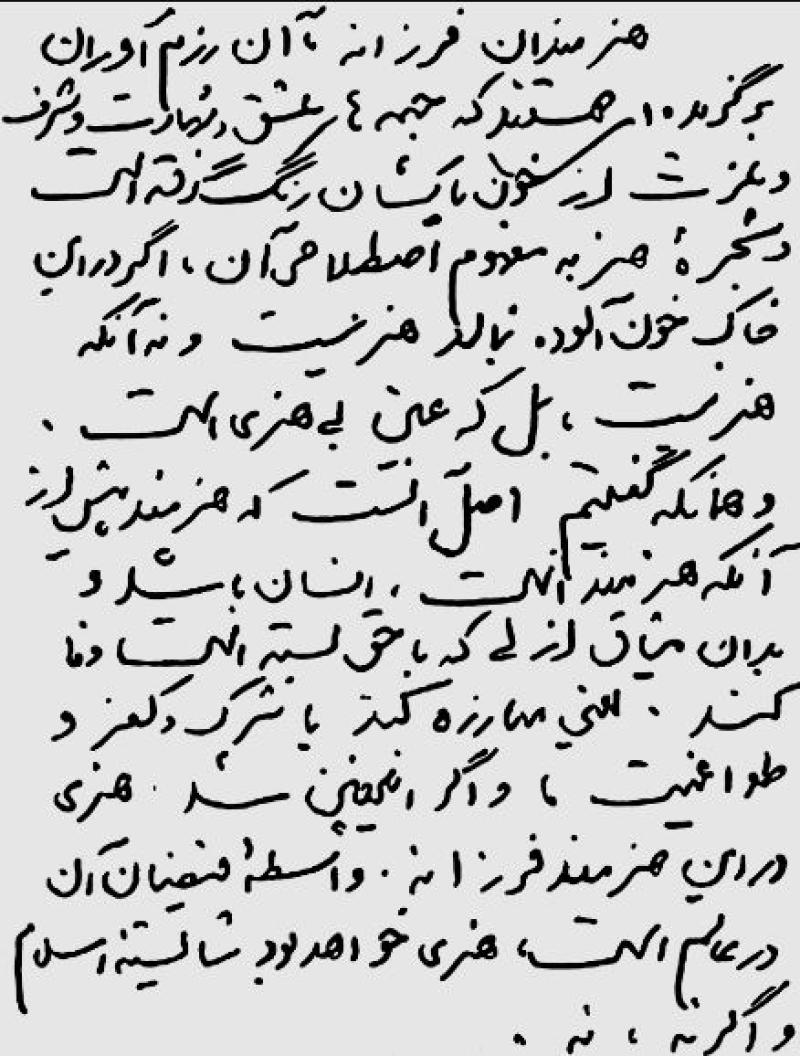 هنرمندان فرزانه ما آن رزم آوران
برگزیده ای هستند که جبهه ها عشق و شهادت و شرف
و عزت از خون پاکشان رنگ گرفته است
و شجرهٔ هنر به مفهوم اصطلاحی آن، اگر در این
خاک خون آلوده نبالد هنر نیست و نه آنکه
هنر نیست، بل که عین بی هنری است.
و همانکه گفتیم اصل آنست که هنرمند پیش از
آنکه هنرمند است، انسان باشد و
بدان میثاق ازلی که با حق بسته است وفا
کند. یعنی مبارزه کند با شرک و کفر و
طواغیت ها و اگر اینچنین شد. هنری
در این هنرمند فرزانه. واسطهٔ فیضان آن
در عالم است، هنری خواهد بود شایسته اسلام
و اگر نه، نه.